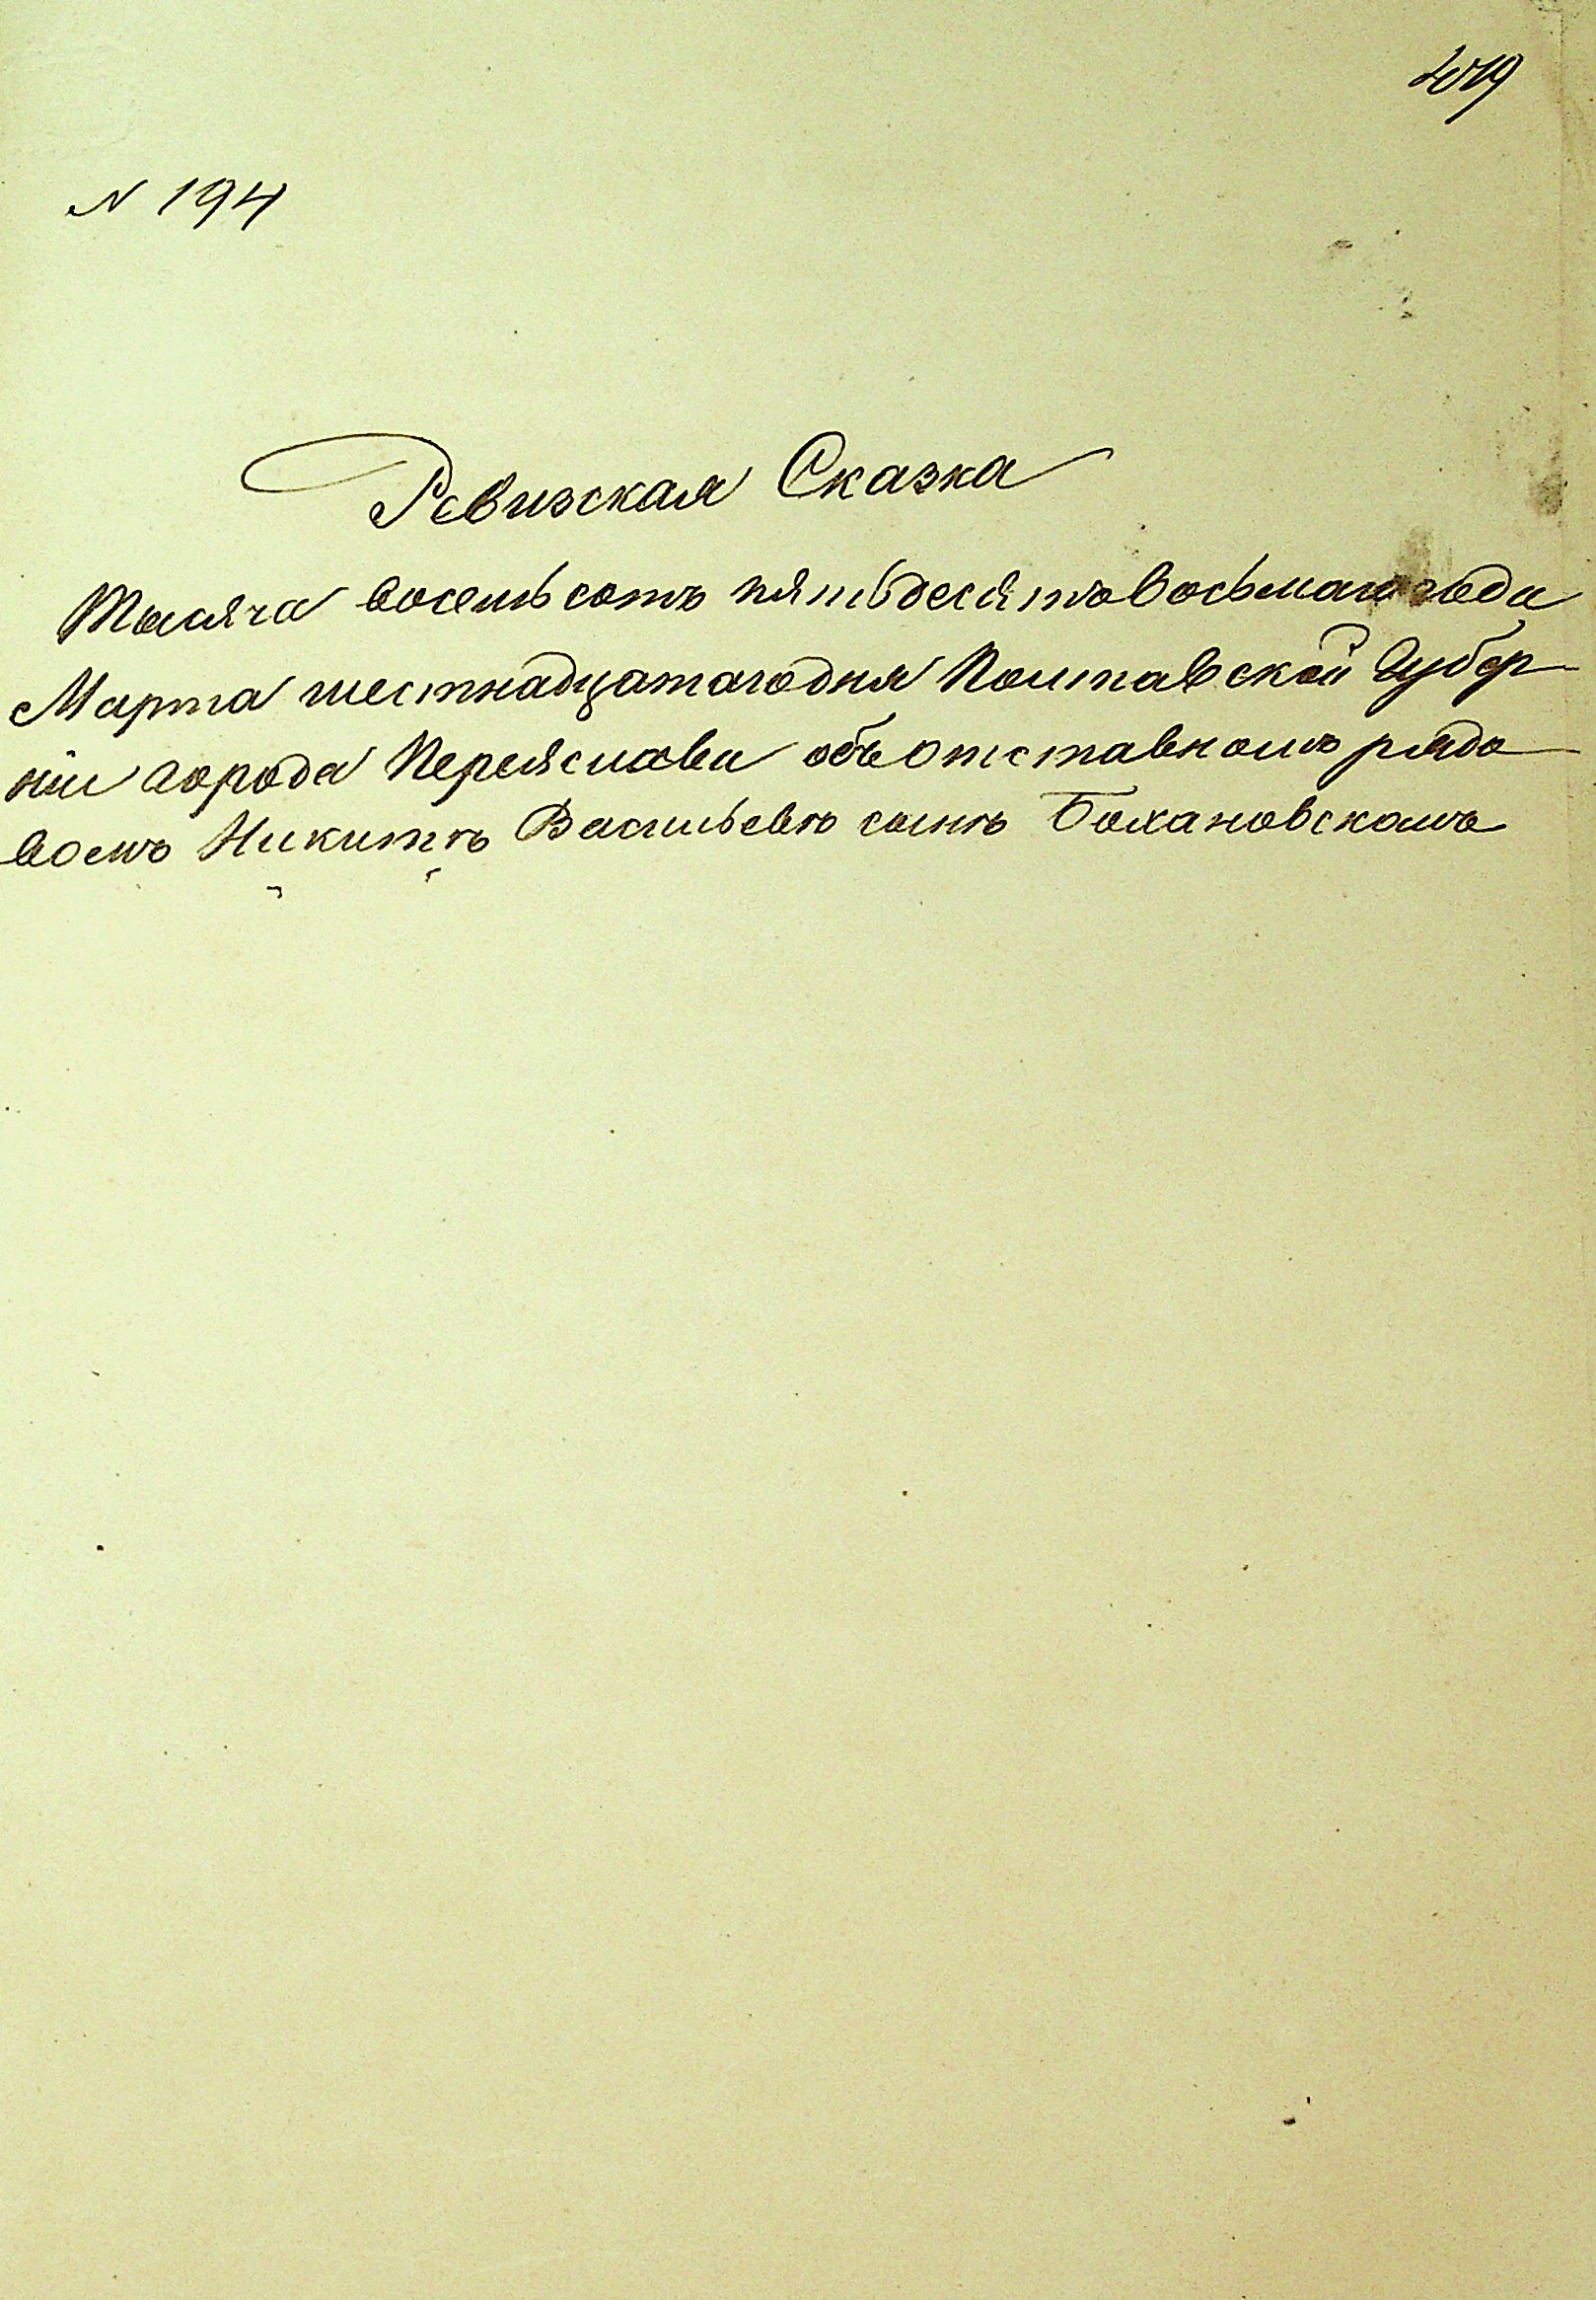 № 194
Ревизская Сказка
Тысяча восемь сотъ пятьдесятъ восьмаго года
Марта шестнадцатаго дня Полтавской Губер
ніи города Переяслава объ отставномъ рядо
вомъ Никитѣ Васильевѣ сынѣ Бохановскомъ